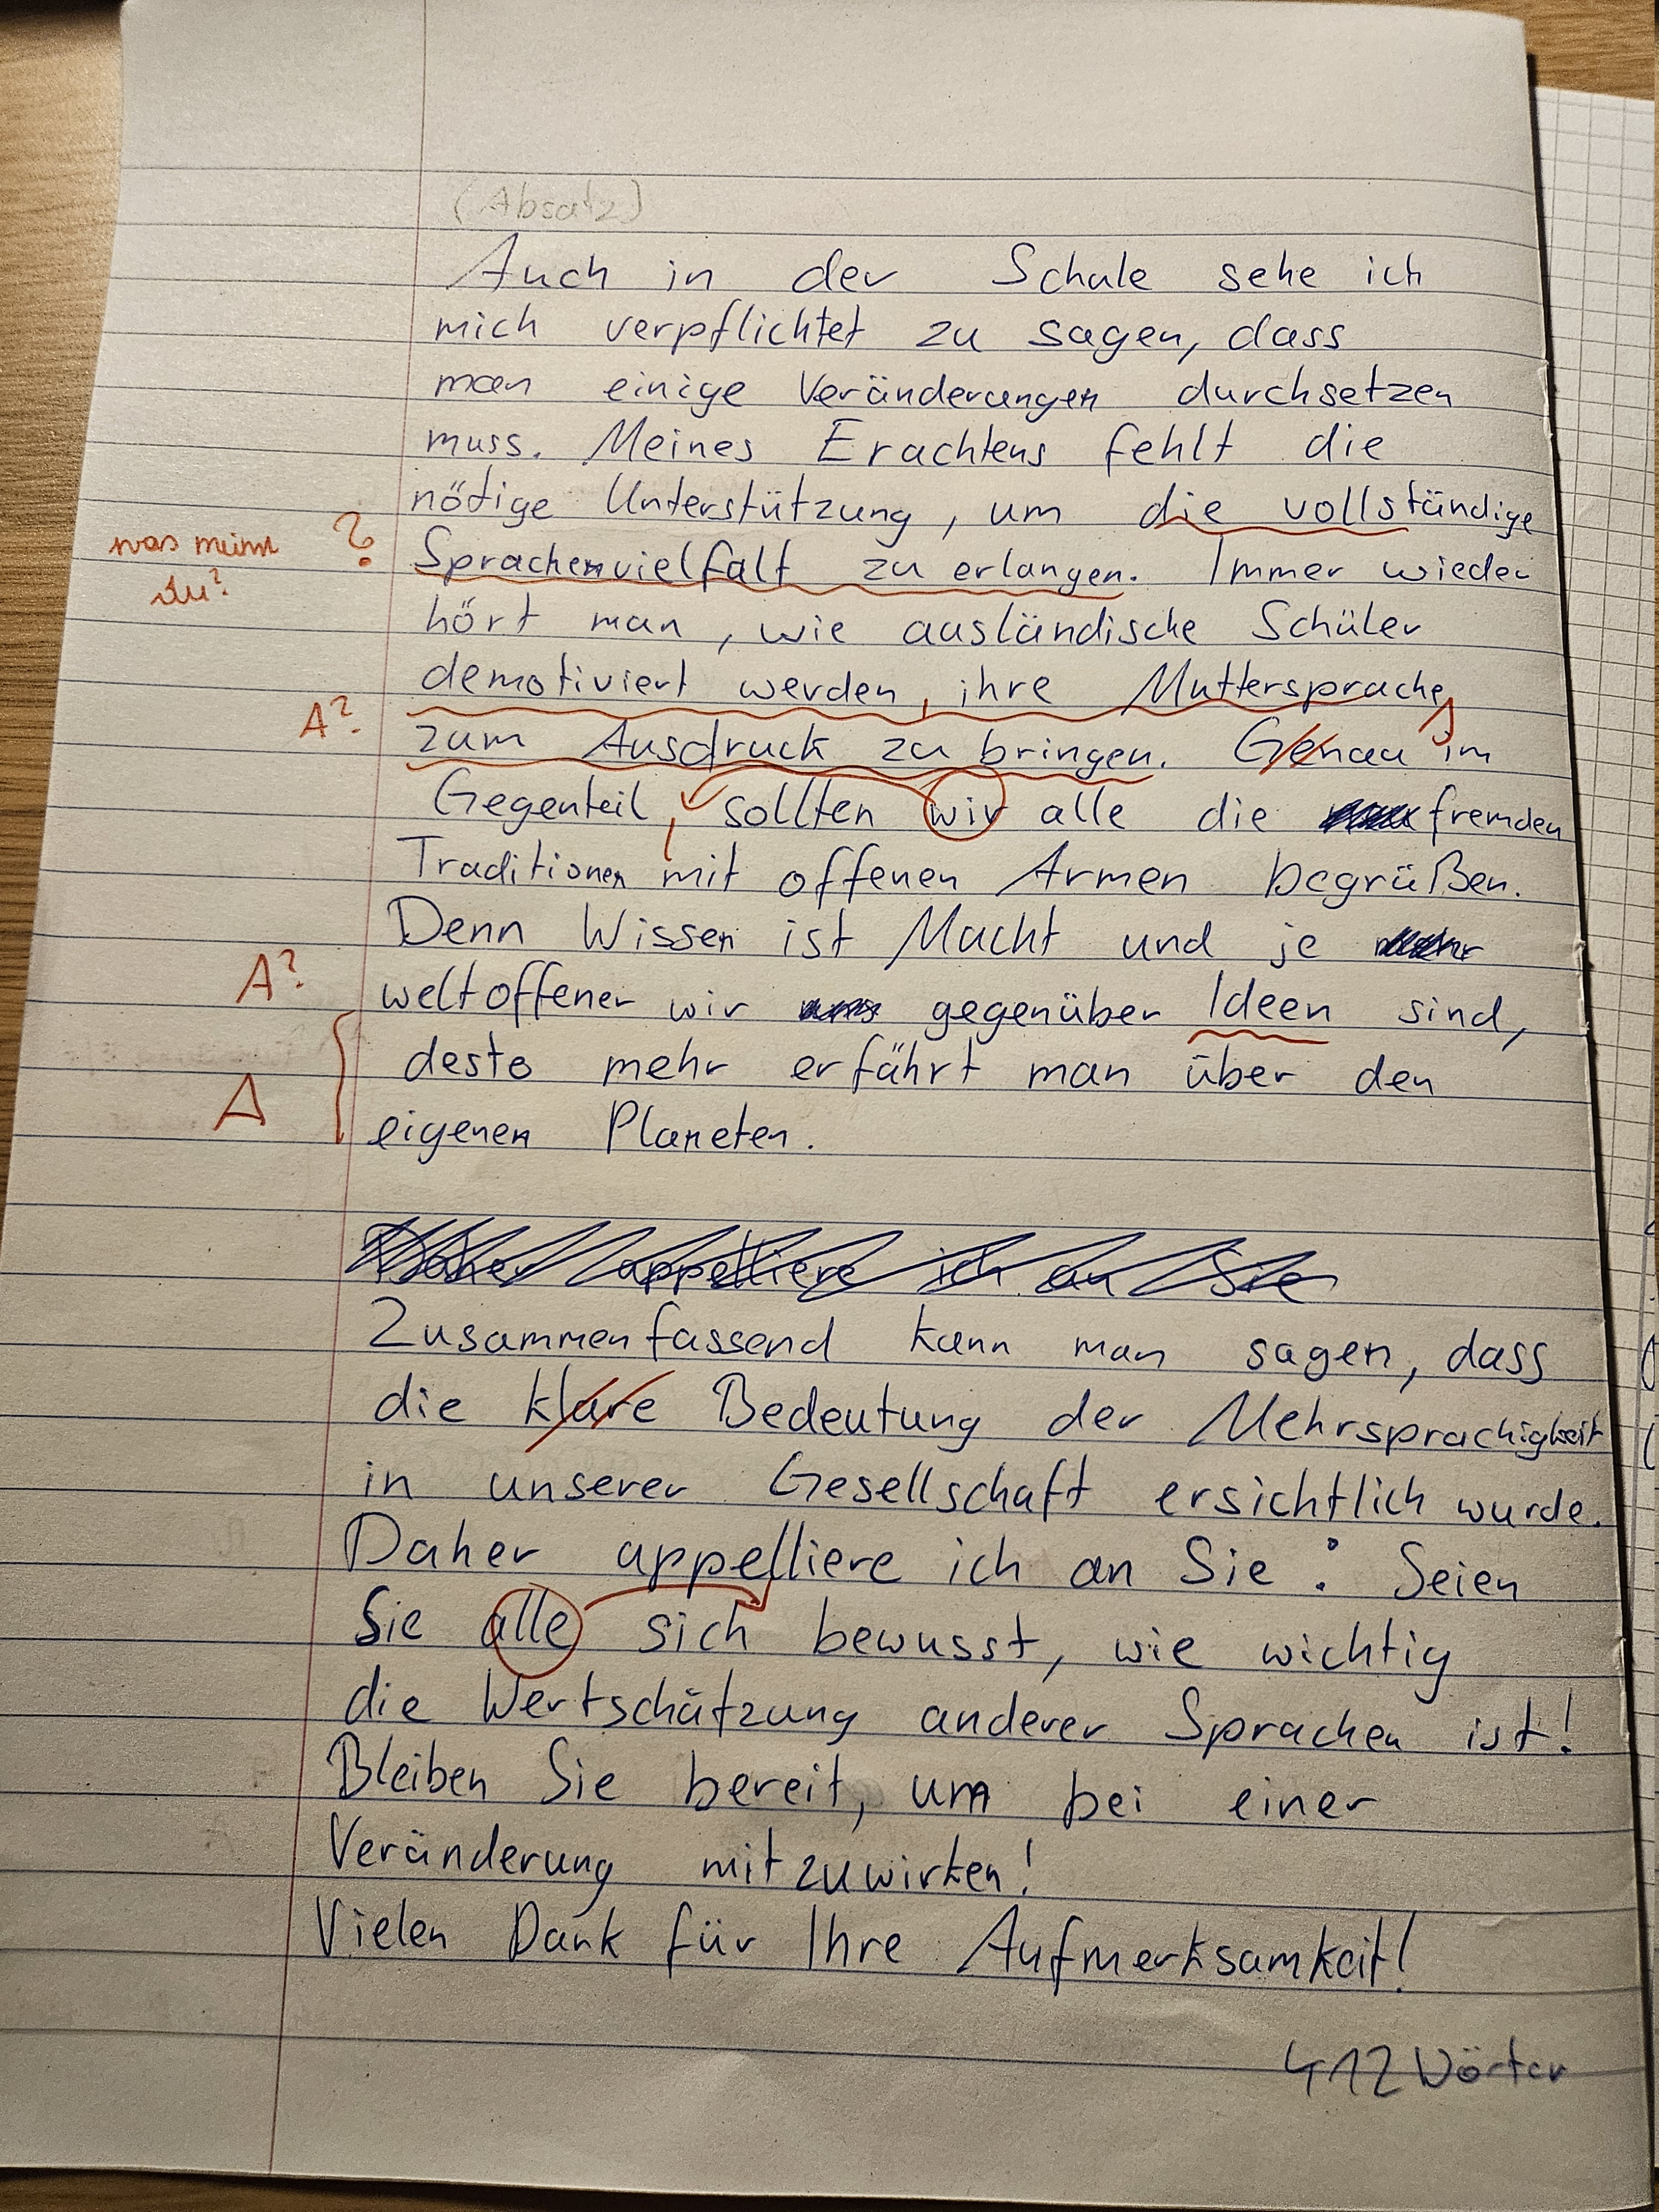 (Absatz)
Auch in der Schule sehe ich
mich verpflichtet zu sagen, dass
man einige Veränderungen durchsetzen
muss. Meines Erachtens fehlt die
nötige Unterstützung, um die vollständige
was meinst ? Sprachenvielfalt zu erlangen. Immer wieder
du?
hört man, wie ausländische Schüler
demotiviert werden, ihre Muttersprache
A? zum Ausdruck zu bringen. Genau im
Gegenteil, sollten wir alle die fremden
Traditionen mit offenen Armen begrüßen.
Denn Wissen ist Macht und je
A? weltoffener wir gegenüber Ideen sind,
desto mehr erfährt man über den
A eigenen Planeten.
Daher appelliere ich an Sie
Zusammenfassend kann man sagen, dass
die klare Bedeutung der Mehrsprachigkeit
in unserer Gesellschaft ersichtlich wurde.
Daher appelliere ich an Sie: Seien
Sie alle sich bewusst, wie wichtig
die Wertschätzung anderer Sprachen ist!
Bleiben Sie bereit, um bei einer
Veränderung mitzuwirken!
Vielen Dank für Ihre Aufmerksamkeit!
412 Wörter